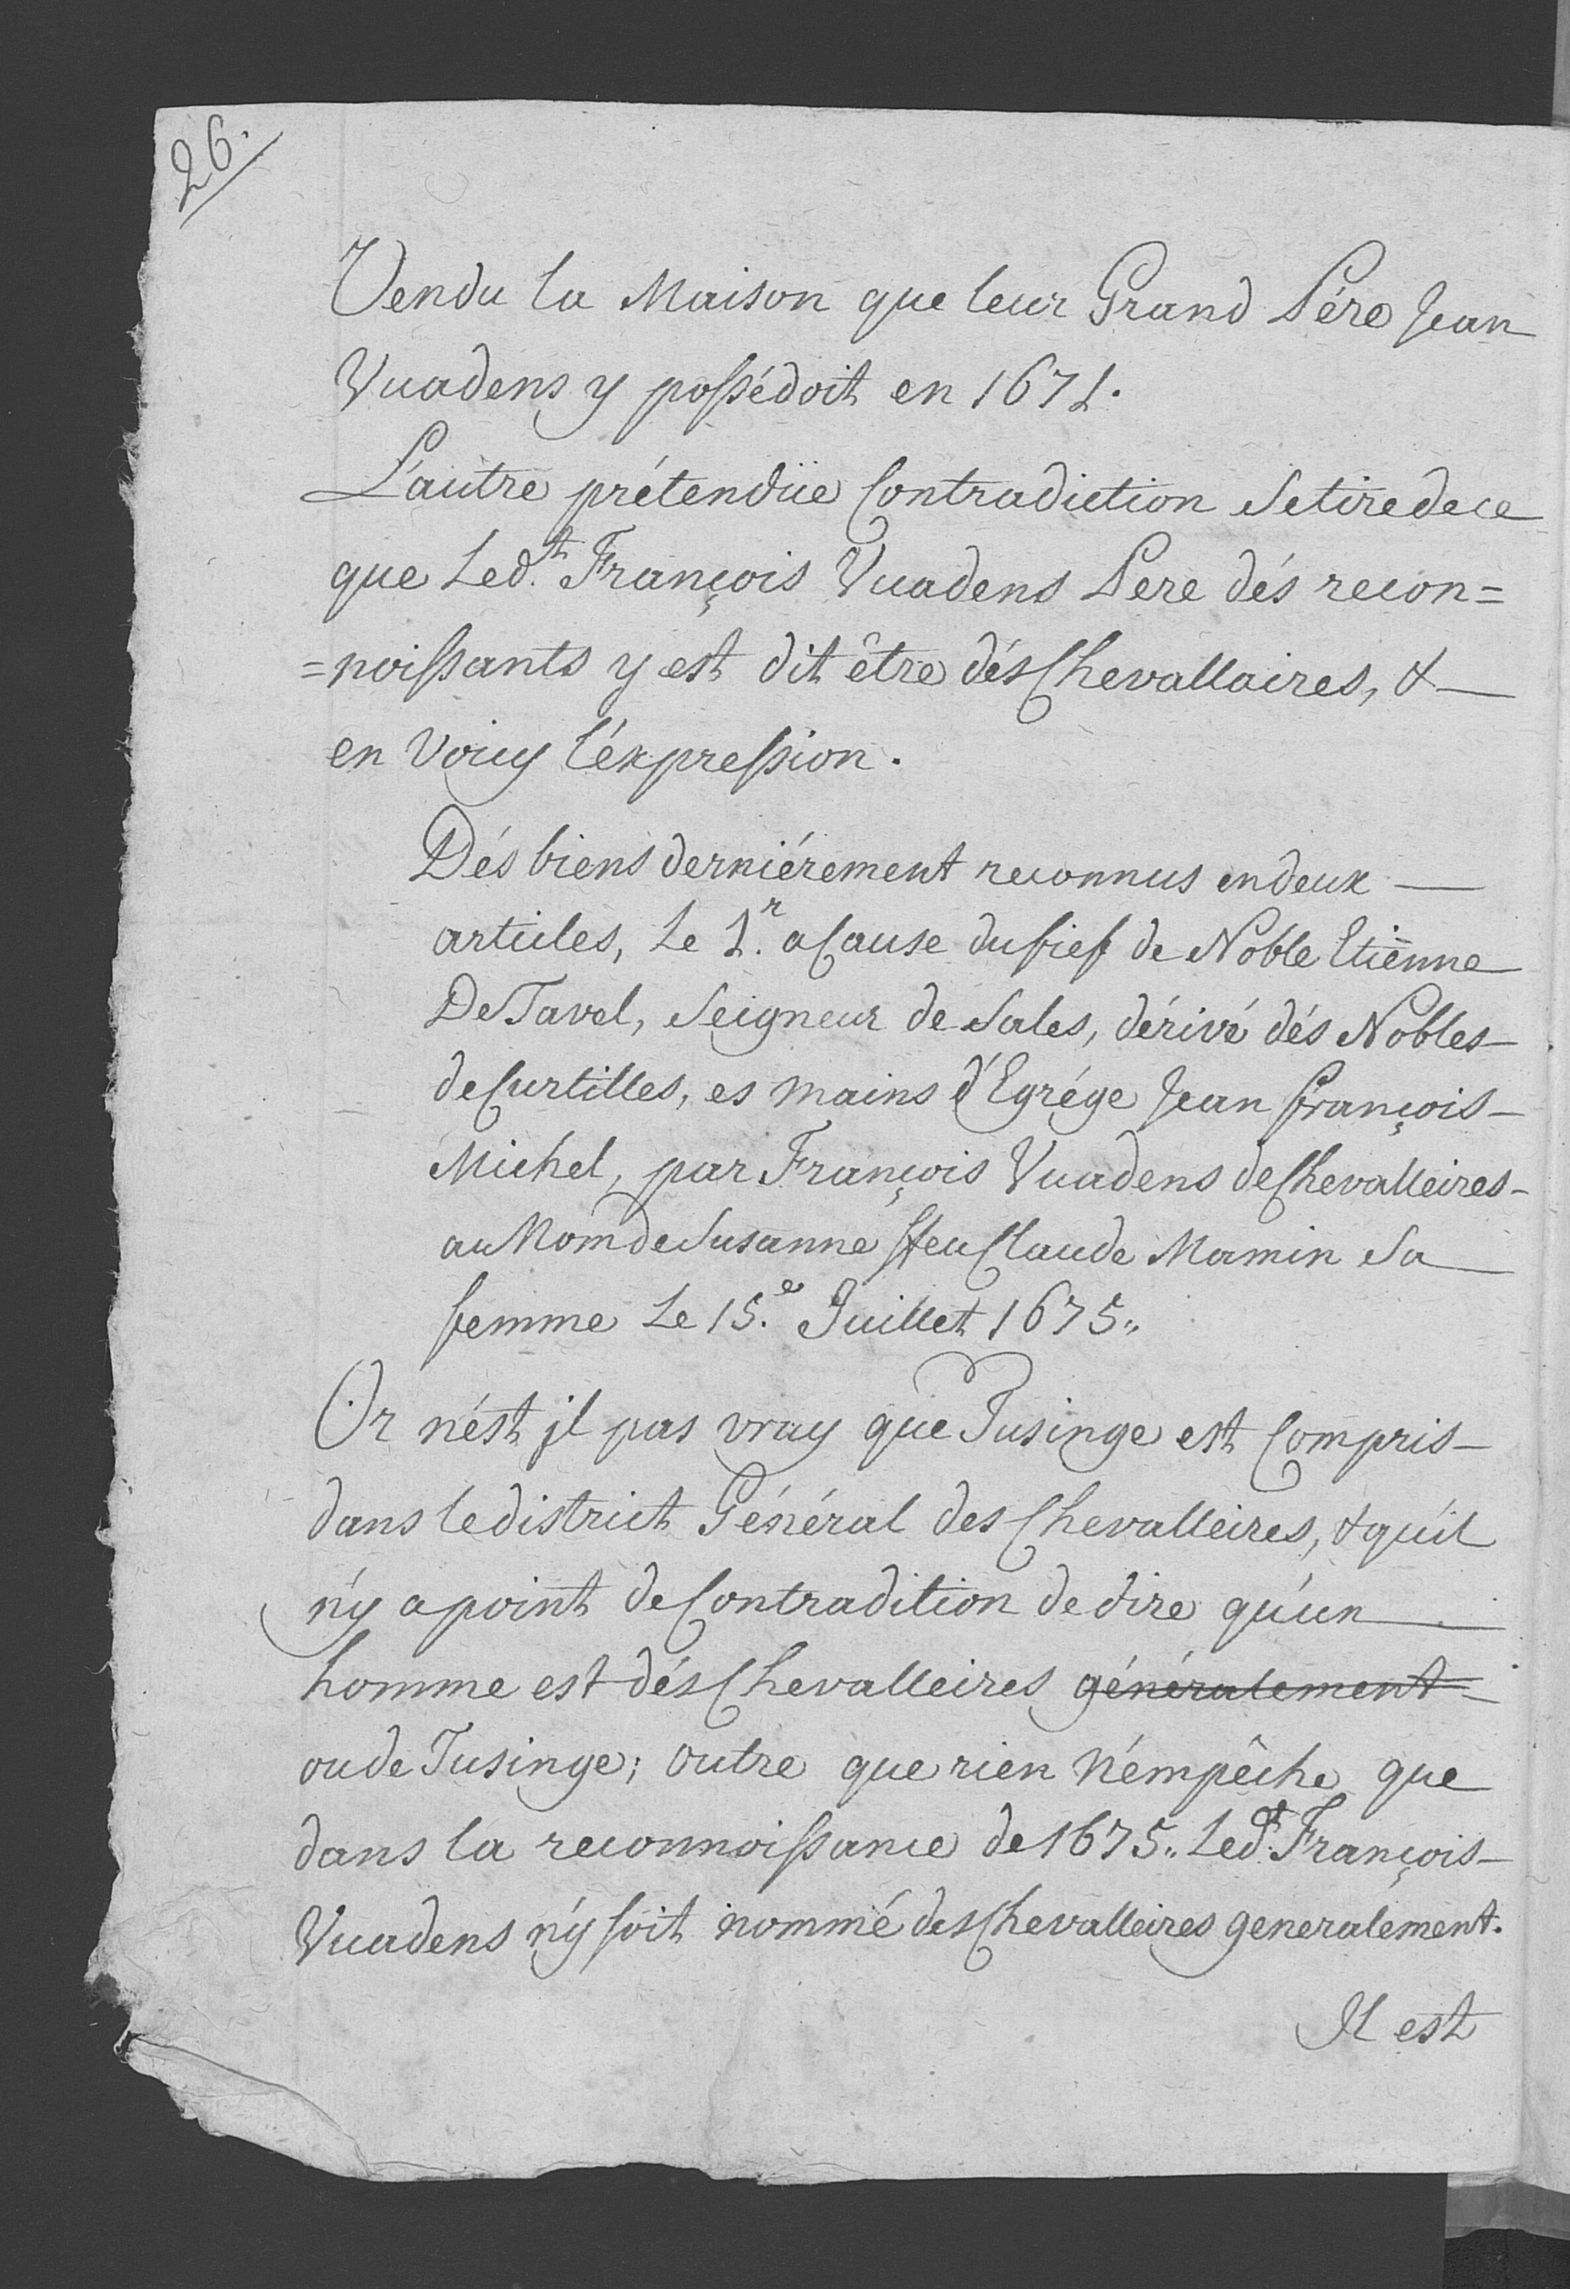 26.
Vendu la Maison que leur Grand Pére Jean
Vuadens y possédoit en 1671.
L'autre prétendüe Contradiction se tire de ce
que Led.t François Vuadens Pere dés recon=
=noissants y est dit être dés Chevallaires, &
en voicy l'éxpression.
Dés biens derniérement reconnus en deux
articles, Le 1.r a Cause du fief de Noble Etienne
De Tavel, Seigneur de Sales, dérivé dés Nobles
de Curtilles, es mains d'Egrége Jean François
Michel, par François Vuadens de Chevalleires
au Nom de Susanne ffeu Claude Mamin Sa
femme Le 15.e Juillet 1675.
Or n'ést jl pas vray que Tusinge est Compris
dans le district Général des Chevalleires, & qu'il
n'y a point de Contradition de dire qu'un
homme est dés Chevalleires généralement
ou de Tusinge; outre que rien n'émpêche que
dans la reconnoissance de 1675. Led.t François
Vuadens n'y soit nommé des Chevalleires generalement.
Il est